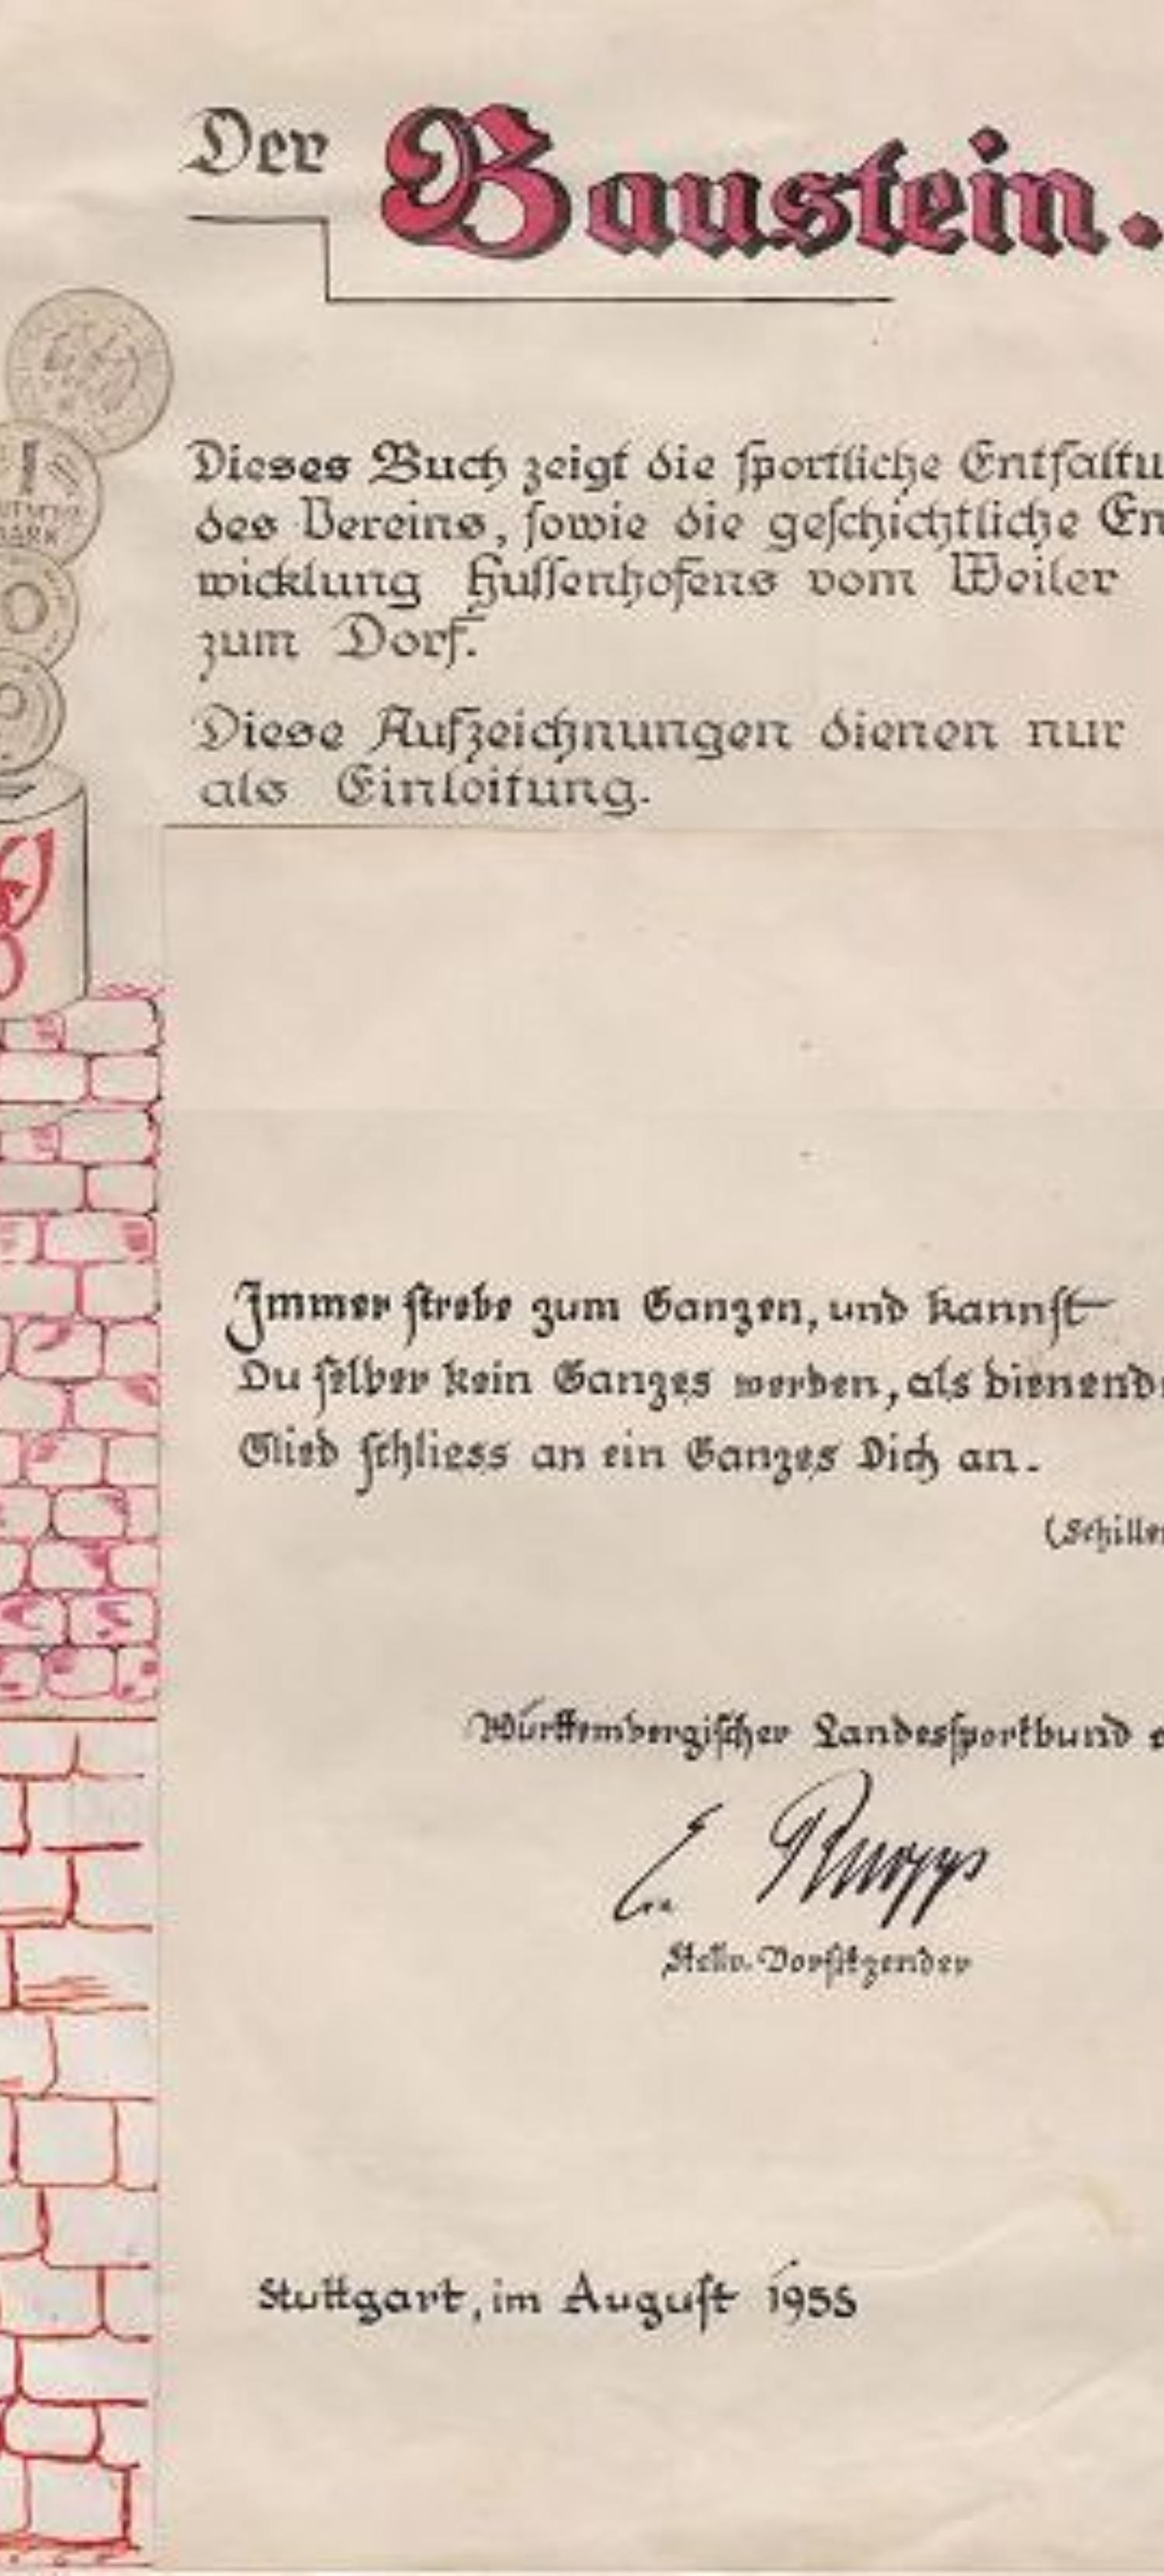 Der Baustein.
1
MARK
Dieses Buch zeigt die sportliche Entfaltu
des Vereins, sowie die geschichtliche En
wicklung Hussenhofens vom Weiler
zum Dorf.
Diese Aufzeichnungen dienen nur
als Einleitung.
Immer strebe zum Ganzen, und kannst
Du selber kein Ganzes werden, als dienende
Glied schliess an ein Ganzes Dich an.
(Schiller
Württembergischer Landessportbund e
Stellv. Vorsitzender
Stuttgart, im August 1955